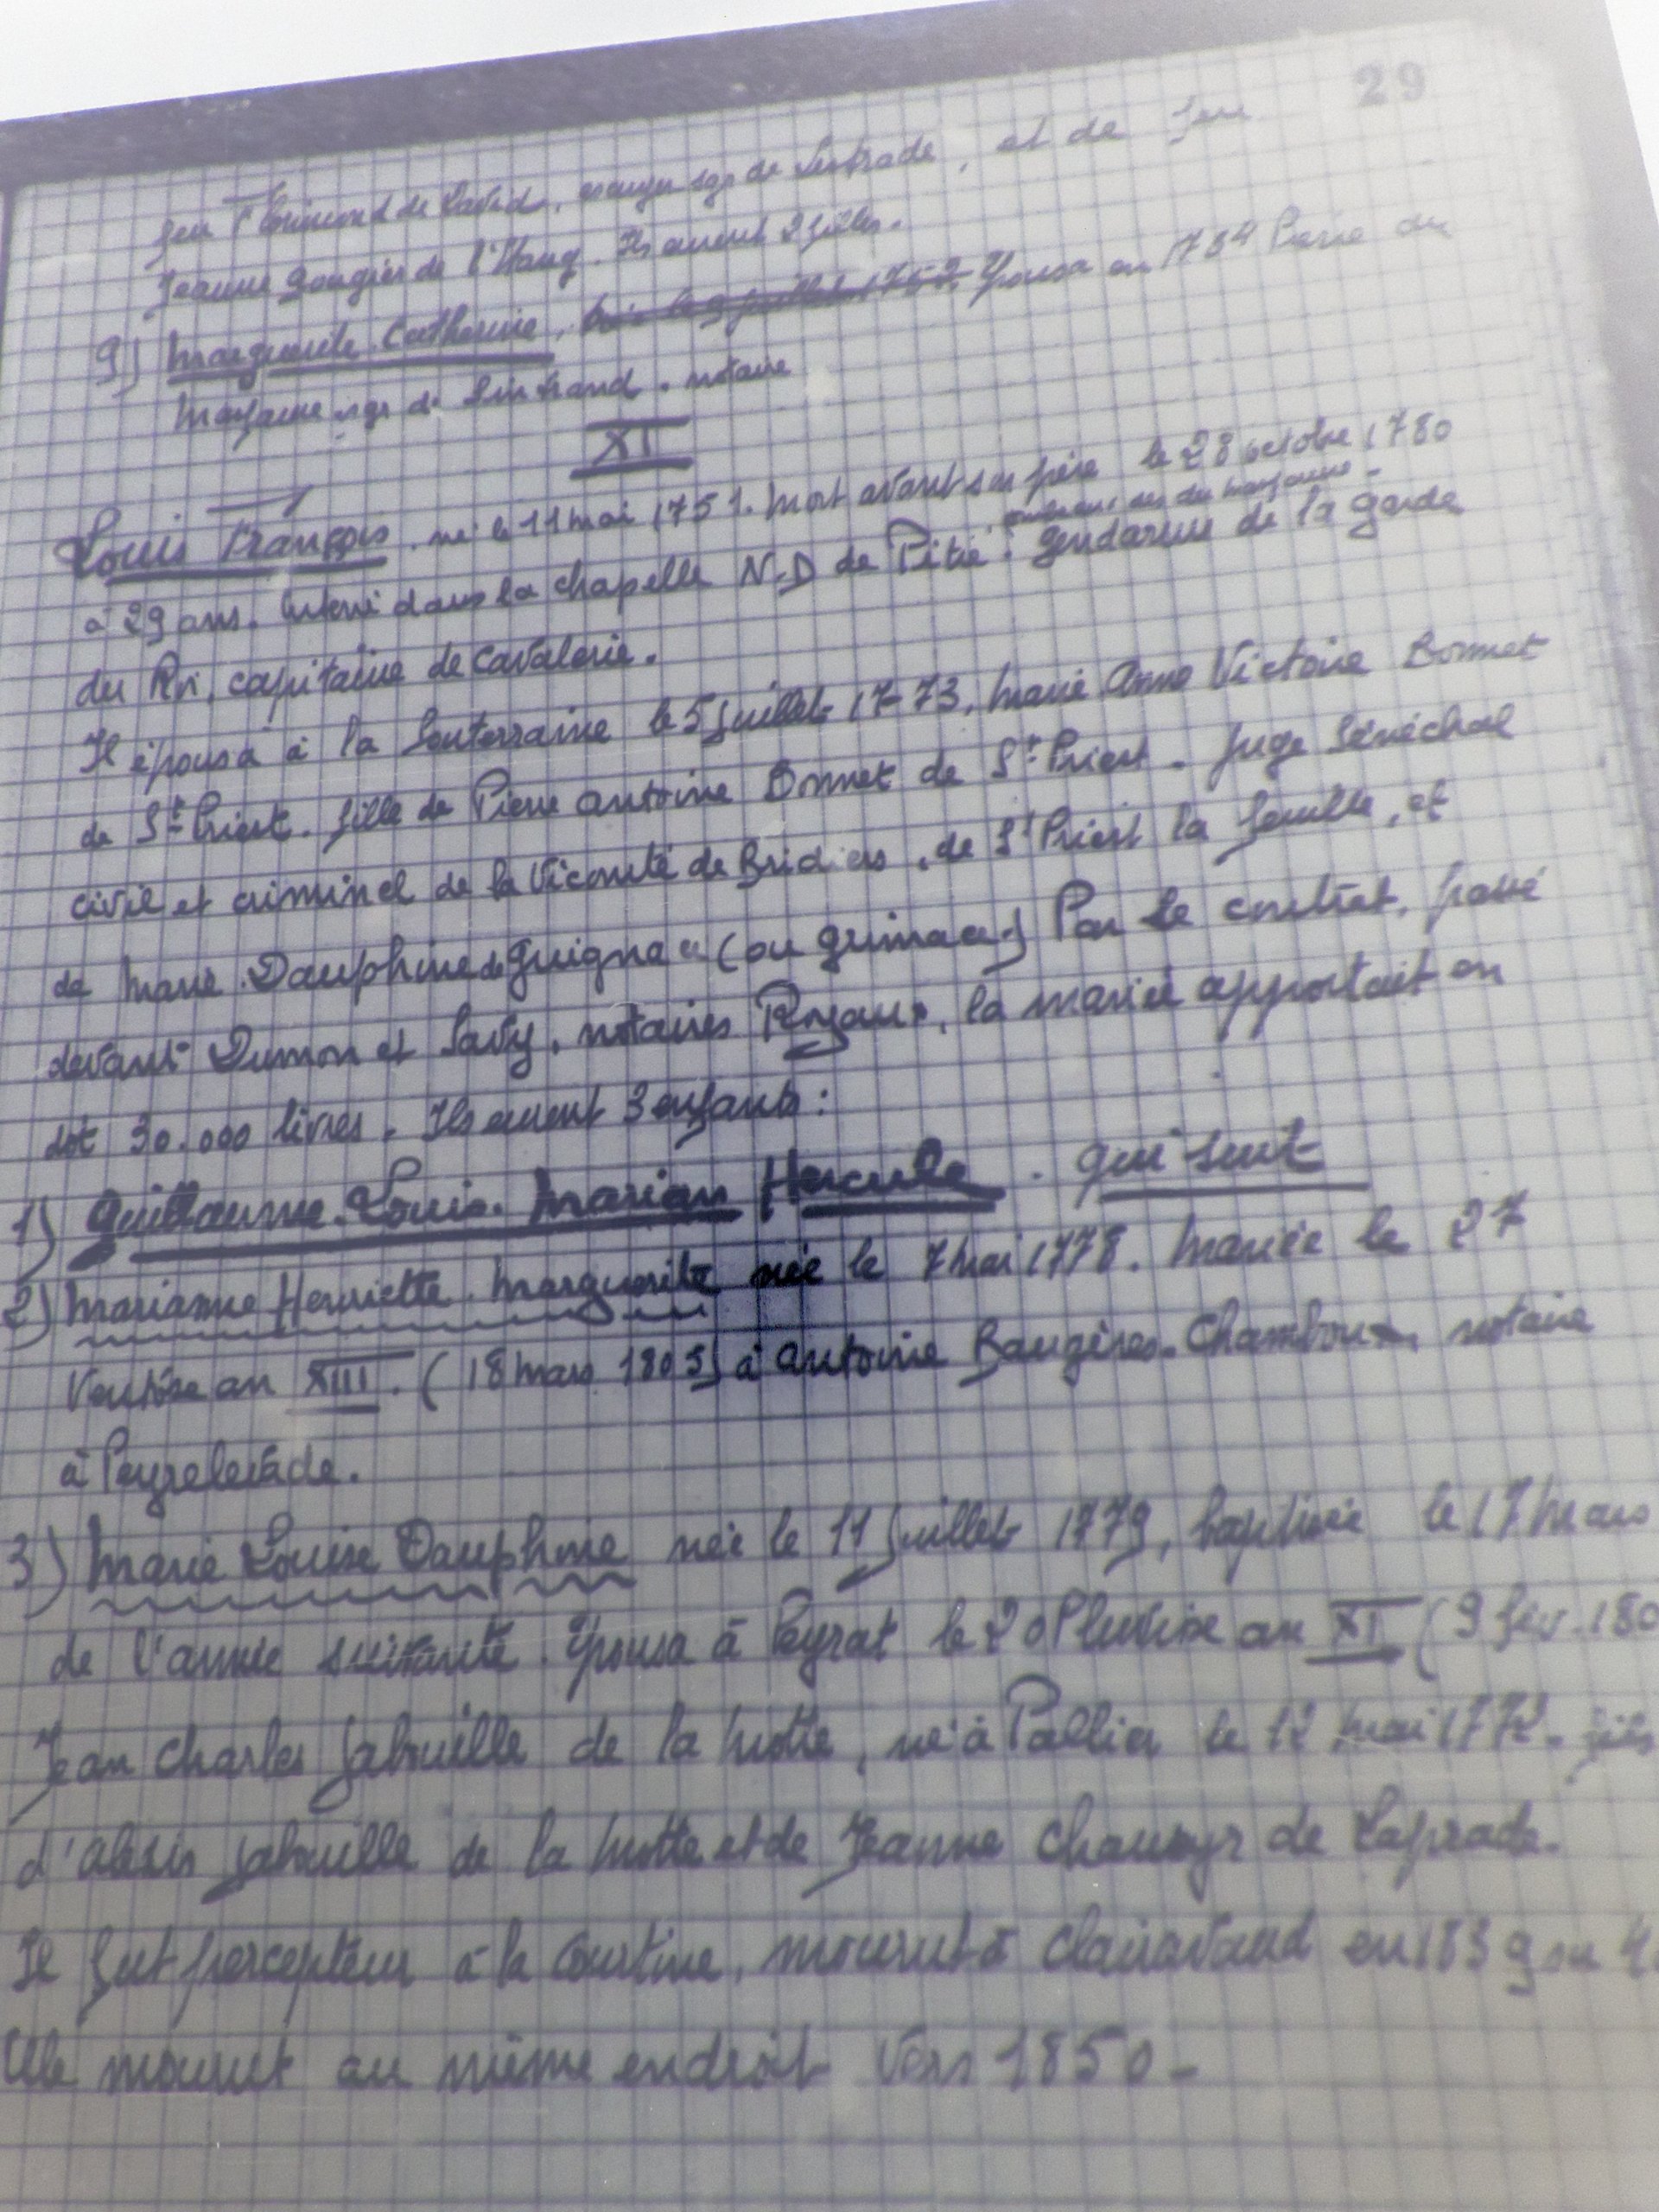 29
feu Florimond de David, écuyer sgr de Lestrade, et de feu
Jeanne Gougier de l'Hang. Ils eurent 2 filles.
9) Marguerite Catherine, née le 9 juillet 1752 Épousa en 1784 Pierre du
Masfaure sgr de notaire
XI
Louis François, né le 11 mai 1751. Mort avant son père le 28 octobre 1780
des du Masfaure -
à 29 ans. Enterré dans la chapelle N.D de Pitié. Gendarme de la garde
du Roi, capitaine de Cavalerie.
Il épousa à la Souterraine le 5 juillet 1773, Marie Anne Victoire Bonnet
de St Priest. fille de Pierre Antoine Bonnet de St Priest. Juge Sénéchal
civil et criminel de la Vicomté de Bridiers, de St Priest la feuille, et
de Marie Dauphine de Guignac (ou Grimac.) Par le contrat, passé
devant Dumon et Savy, notaires Royaux, la mariée apportait en
dot 30.000 livres. Ils eurent 3 enfants:
1) Guillaume. Louis. Marian Hercule. qui suit
2) Marianne Henriette. Marguerite née le 7 mai 1778. Mariée le 27
Ventôse an XIII. (18 mars 1805) à Antoine Baugères. Chamboux notaire
à Peyrelevade.
3) Marie Louise Dauphine née le 11 juillet 1779, baptisée le 17 mars
de l'année suivante. Épousa à Peyrat le 20 Pluviose an XI (9 fev. 180
Jean Charles Jabouille de la Motte, né à Pallier le 12 mai 1772. fils
d'Alexis Jabouille de la Motte et de Jeanne Chaussyr de Laprade.
Il fut percepteur à la Courtine, mourut à Clairavaud en 1839 ou 4
Elle mourut au même endroit vers 1850 -